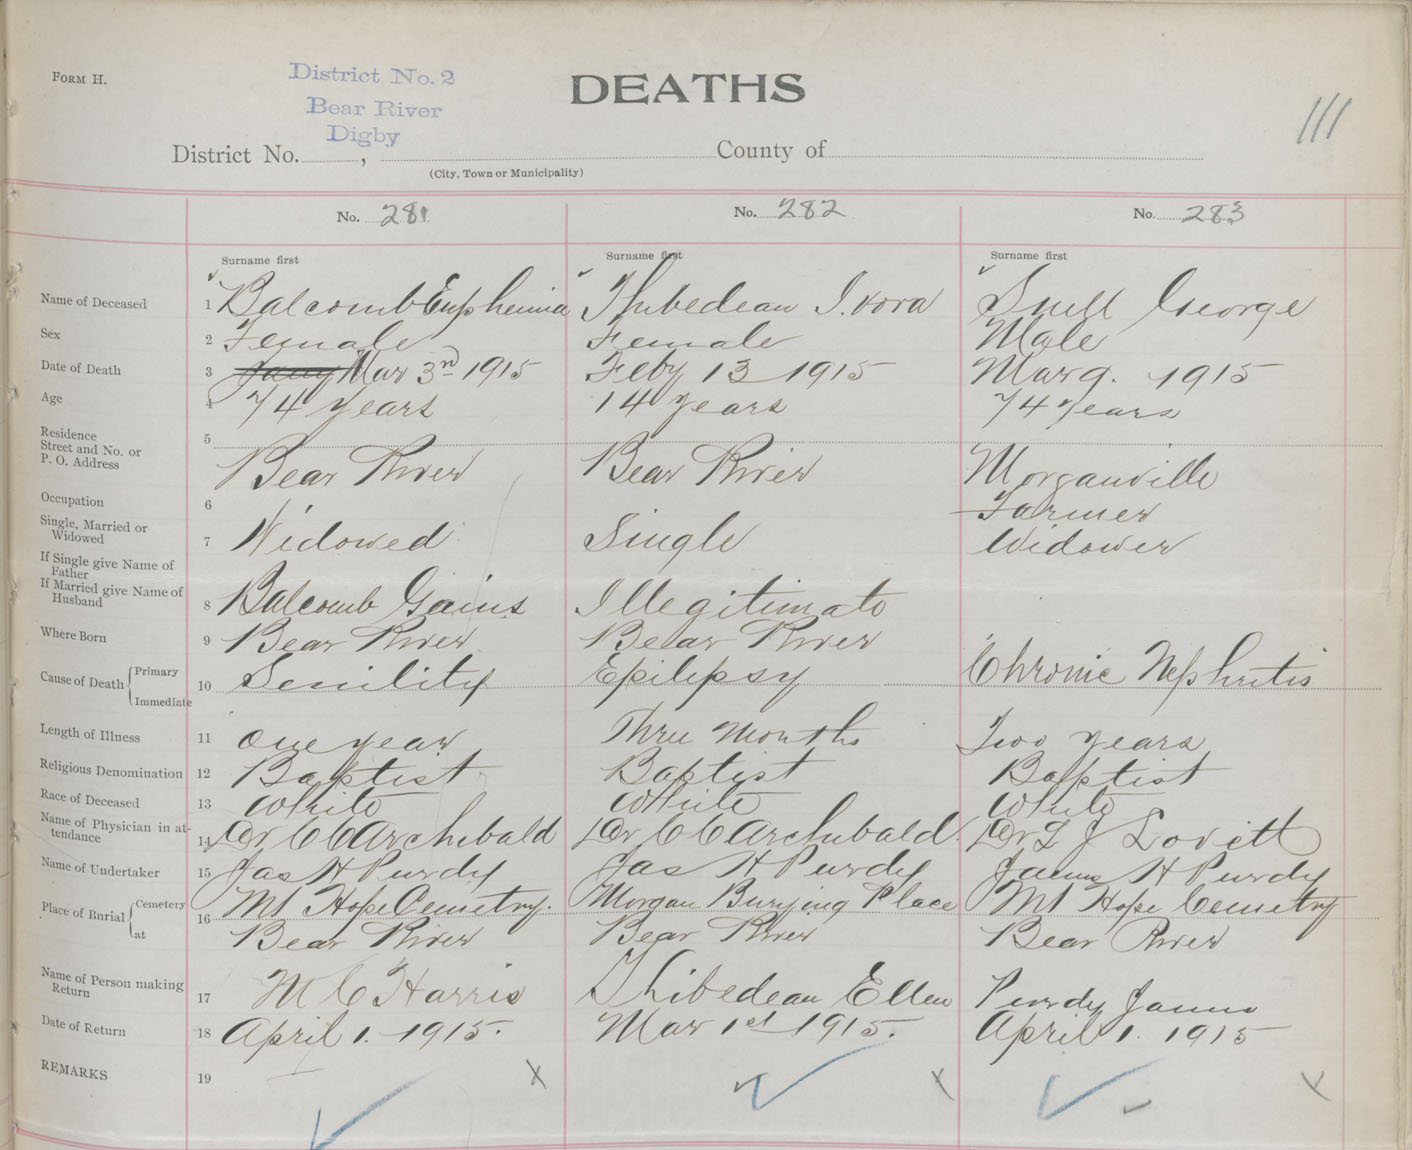 FORM H.
District No. 2
Bear River
Digby
DEATHS
111
District No. , County of
(City, Town or Municipality)
No. 281 No. 282 No. 283
Surname first Surname first Surname first
Name of Deceased 1 Balcomb Euphemia Thibedeau George
Sex 2 Female Female Male
Date of Death 3 Jany Mar 3rd 1915 Feby 13 1915 Mar 9. 1915
Age 4 74 years 14 years 74 years
Residence
Street and No. or
P. O. Address 5 Bear River Bear River Morganville
Occupation 6 Farmer
Single, Married or
Widowed 7 Widowed Single Widower
If Single give Name of
Father
If Married give Name of
Husband 8 Balcomb Gains Illegitimate
Where Born 9 Bear River Bear River
Cause of Death Primary 10 Senility Epilepsy Chronic Nephritis
Immediate
Length of Illness 11 One year Three Months Two years
Religious Denomination 12 Baptist Baptist Baptist
Race of Deceased 13 White White White
Name of Physician in at-
tendance 14 Dr C C Archibald Dr C C Archibald Dr L J Lovitt
Name of Undertaker 15 Jas H Purdy Jas H Purdy James H Purdy
Place of Burial Cemetery 16 Mt Hope Cemetry. Morgan Burying Place Mt Hope Cemetry
at Bear River Bear River Bear River
Name of Person making
Return 17 M C Harris Thibedeau Ellen Purdy James
Date of Return 18 April 1. 1915. Mar 1st 1915. April 1. 1915
REMARKS 19